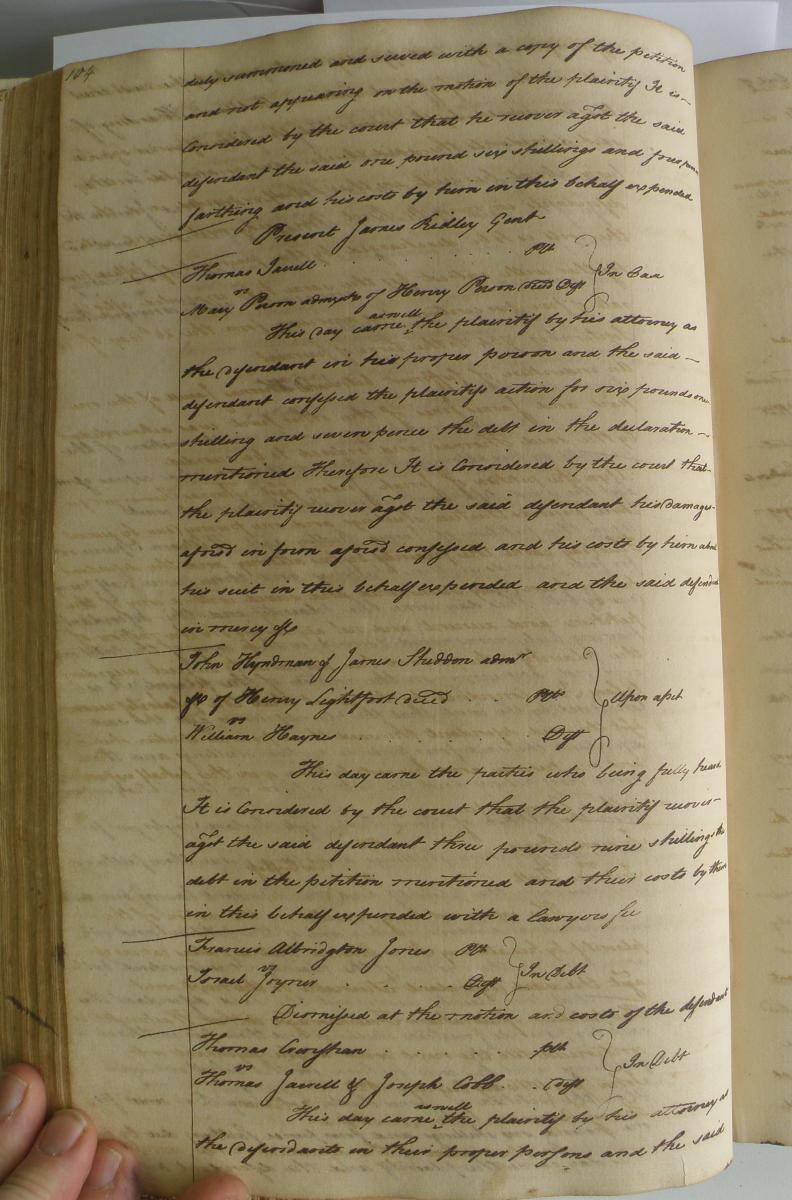 104
duly summoned and served with a copy of the petition
and not appearing on the motion of the plaintif It is
Considered by the court that he recover agst the said
defendant the said one pound six shillings and four pence
farthing and his costs by him in this behalf expended
Present James Ridley Gent
Thomas Jarrell . . . . . Plt
vs } In Case
Mary Person admx of Henry Person deced Deft
This day came aswell the plaintif by his attorney as
the defendant in his proper person and the said
defendant confessed the plaintifs action for six pounds one
shilling and seven pence the debt in the declaration
mentioned Therefore It is Considered by the court that
the plaintif recover agst the said defendant his damages
aforsd in form aforsd confessed and his costs by him about
his suit in this behalf expended and the said defendt
in mercy &c
John Hyndman & James Sheddon admrs
&c of Henry Lightfoot deced . . Plts } Upon a pet
vs
William Haynes . . . . . Deft
This day came the parties who being fully heard
It is Considered by the court that the plaintif recover
agst the said defendant three pounds nine shillings the
debt in the petition mentioned and their costs by them
in this behalf expended with a lawyers fee
Francis Albridgton Jones Plt
vs } In Debt
Israel Joyner . . . . Deft
Dismissed at the motion and costs of the defendant
Thomas . . . . . plt
vs } In Debt
Thomas Jarrell & Joseph Cobb . . Deft
This day came aswell the plaintif by his attorney as
the defendants in their proper persons and the said